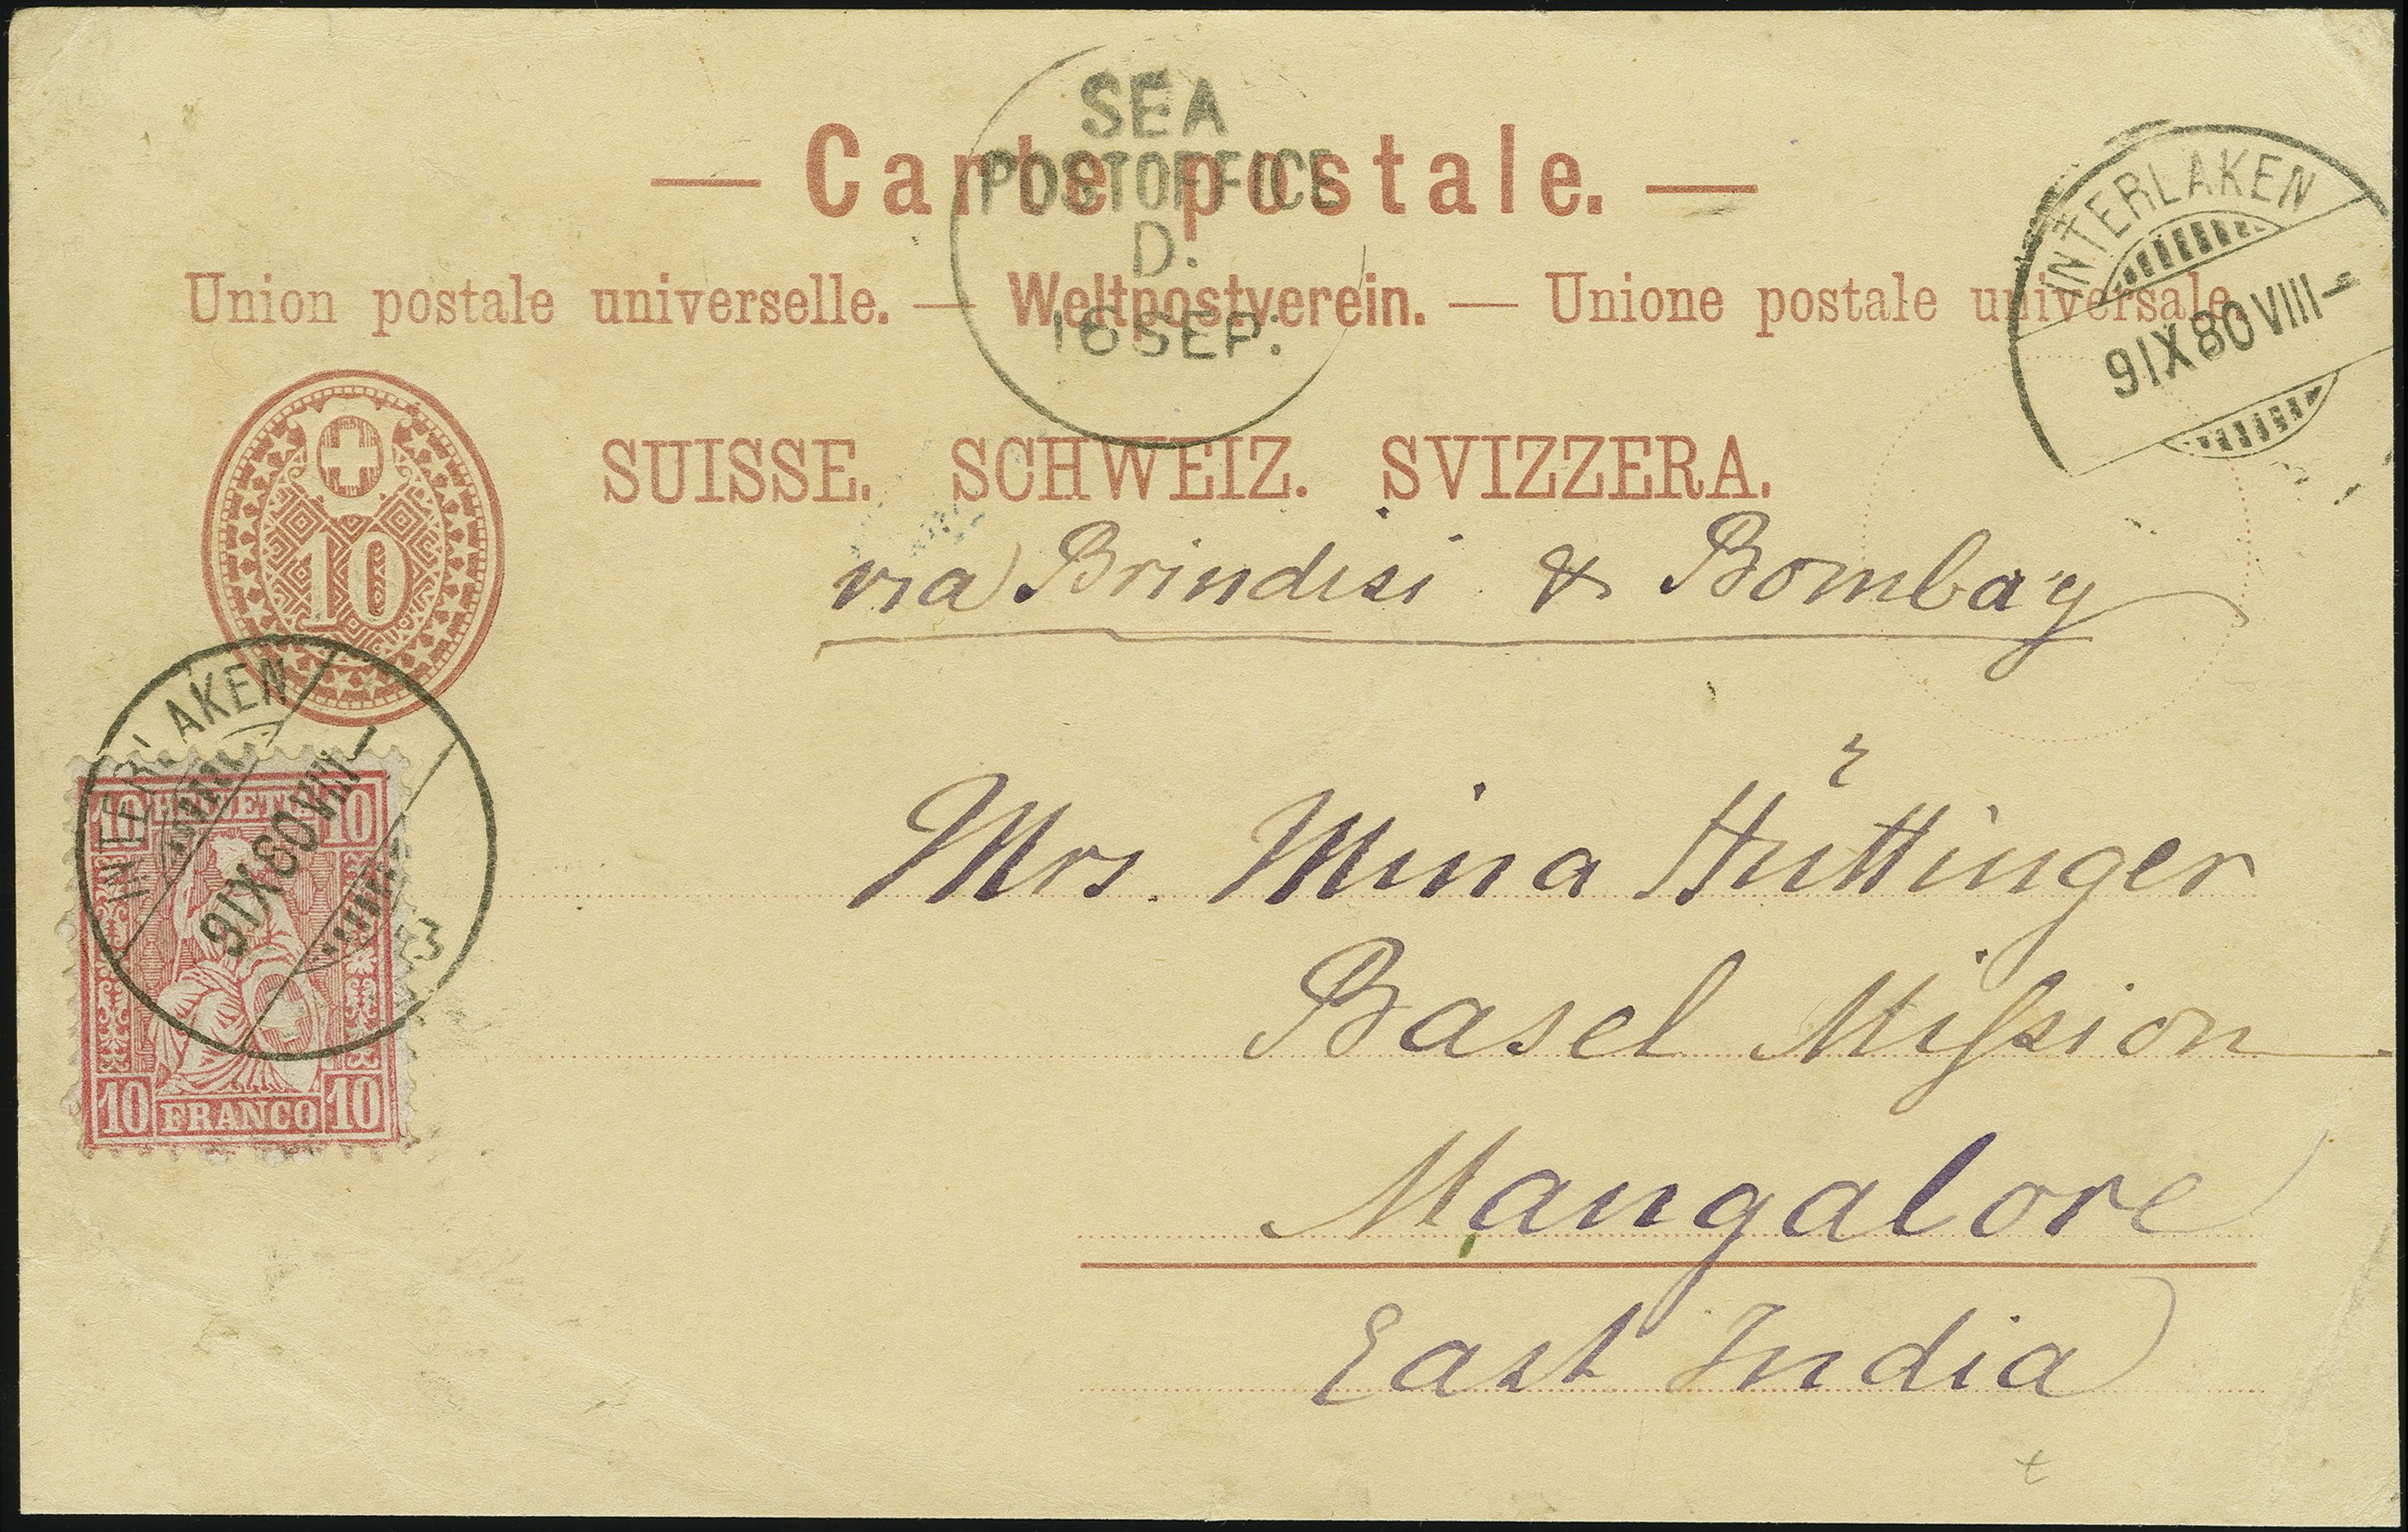 SEA
POSTOFFICE
D.
16 SEP.
— Carte postale. —
Union postale universelle. — Weltpostverein. — Unione postale universale.
INTERLAKEN
9 IX 80 VIII–
SUISSE. SCHWEIZ. SVIZZERA.
10
via Brindisi & Bombay
INTERLAKEN
9 IX 80 VIII–
10 HELVETIA 10
10 FRANCO 10
Mrs. Mina Hüttinger
Basel Mission
Mangalore
East India